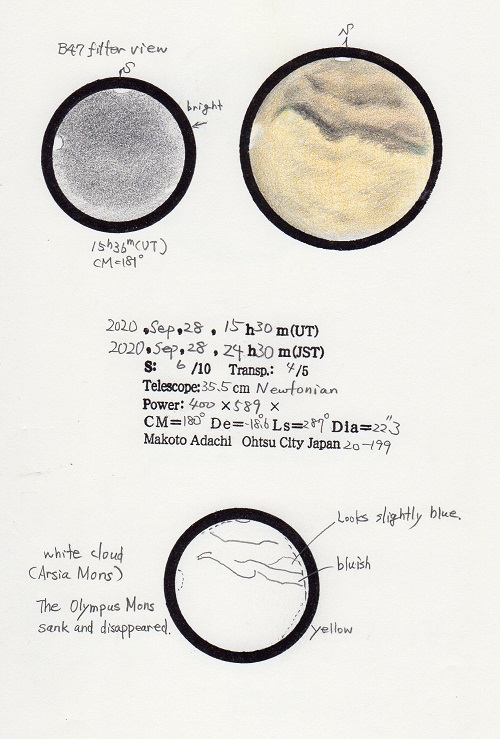 B47 filter view
S
S
bright
15h36m(UT)
CM=181°
2020, Sep, 28, 15 h30 m(UT)
2020, Sep, 28, 24 h30 m(JST)
S: 6 /10 Transp.: 4/5
Telescope: 35.5 cm Newtonian
Power: 400 × 589 ×
CM=180° De=-18.6 Ls=287° Dia=22"3
Makoto Adachi Ohtsu City Japan 20-199
Looks slightly blue.
white cloud
(Arsia Mons)
bluish
The Olympus Mons
sank and disappeared.
yellow